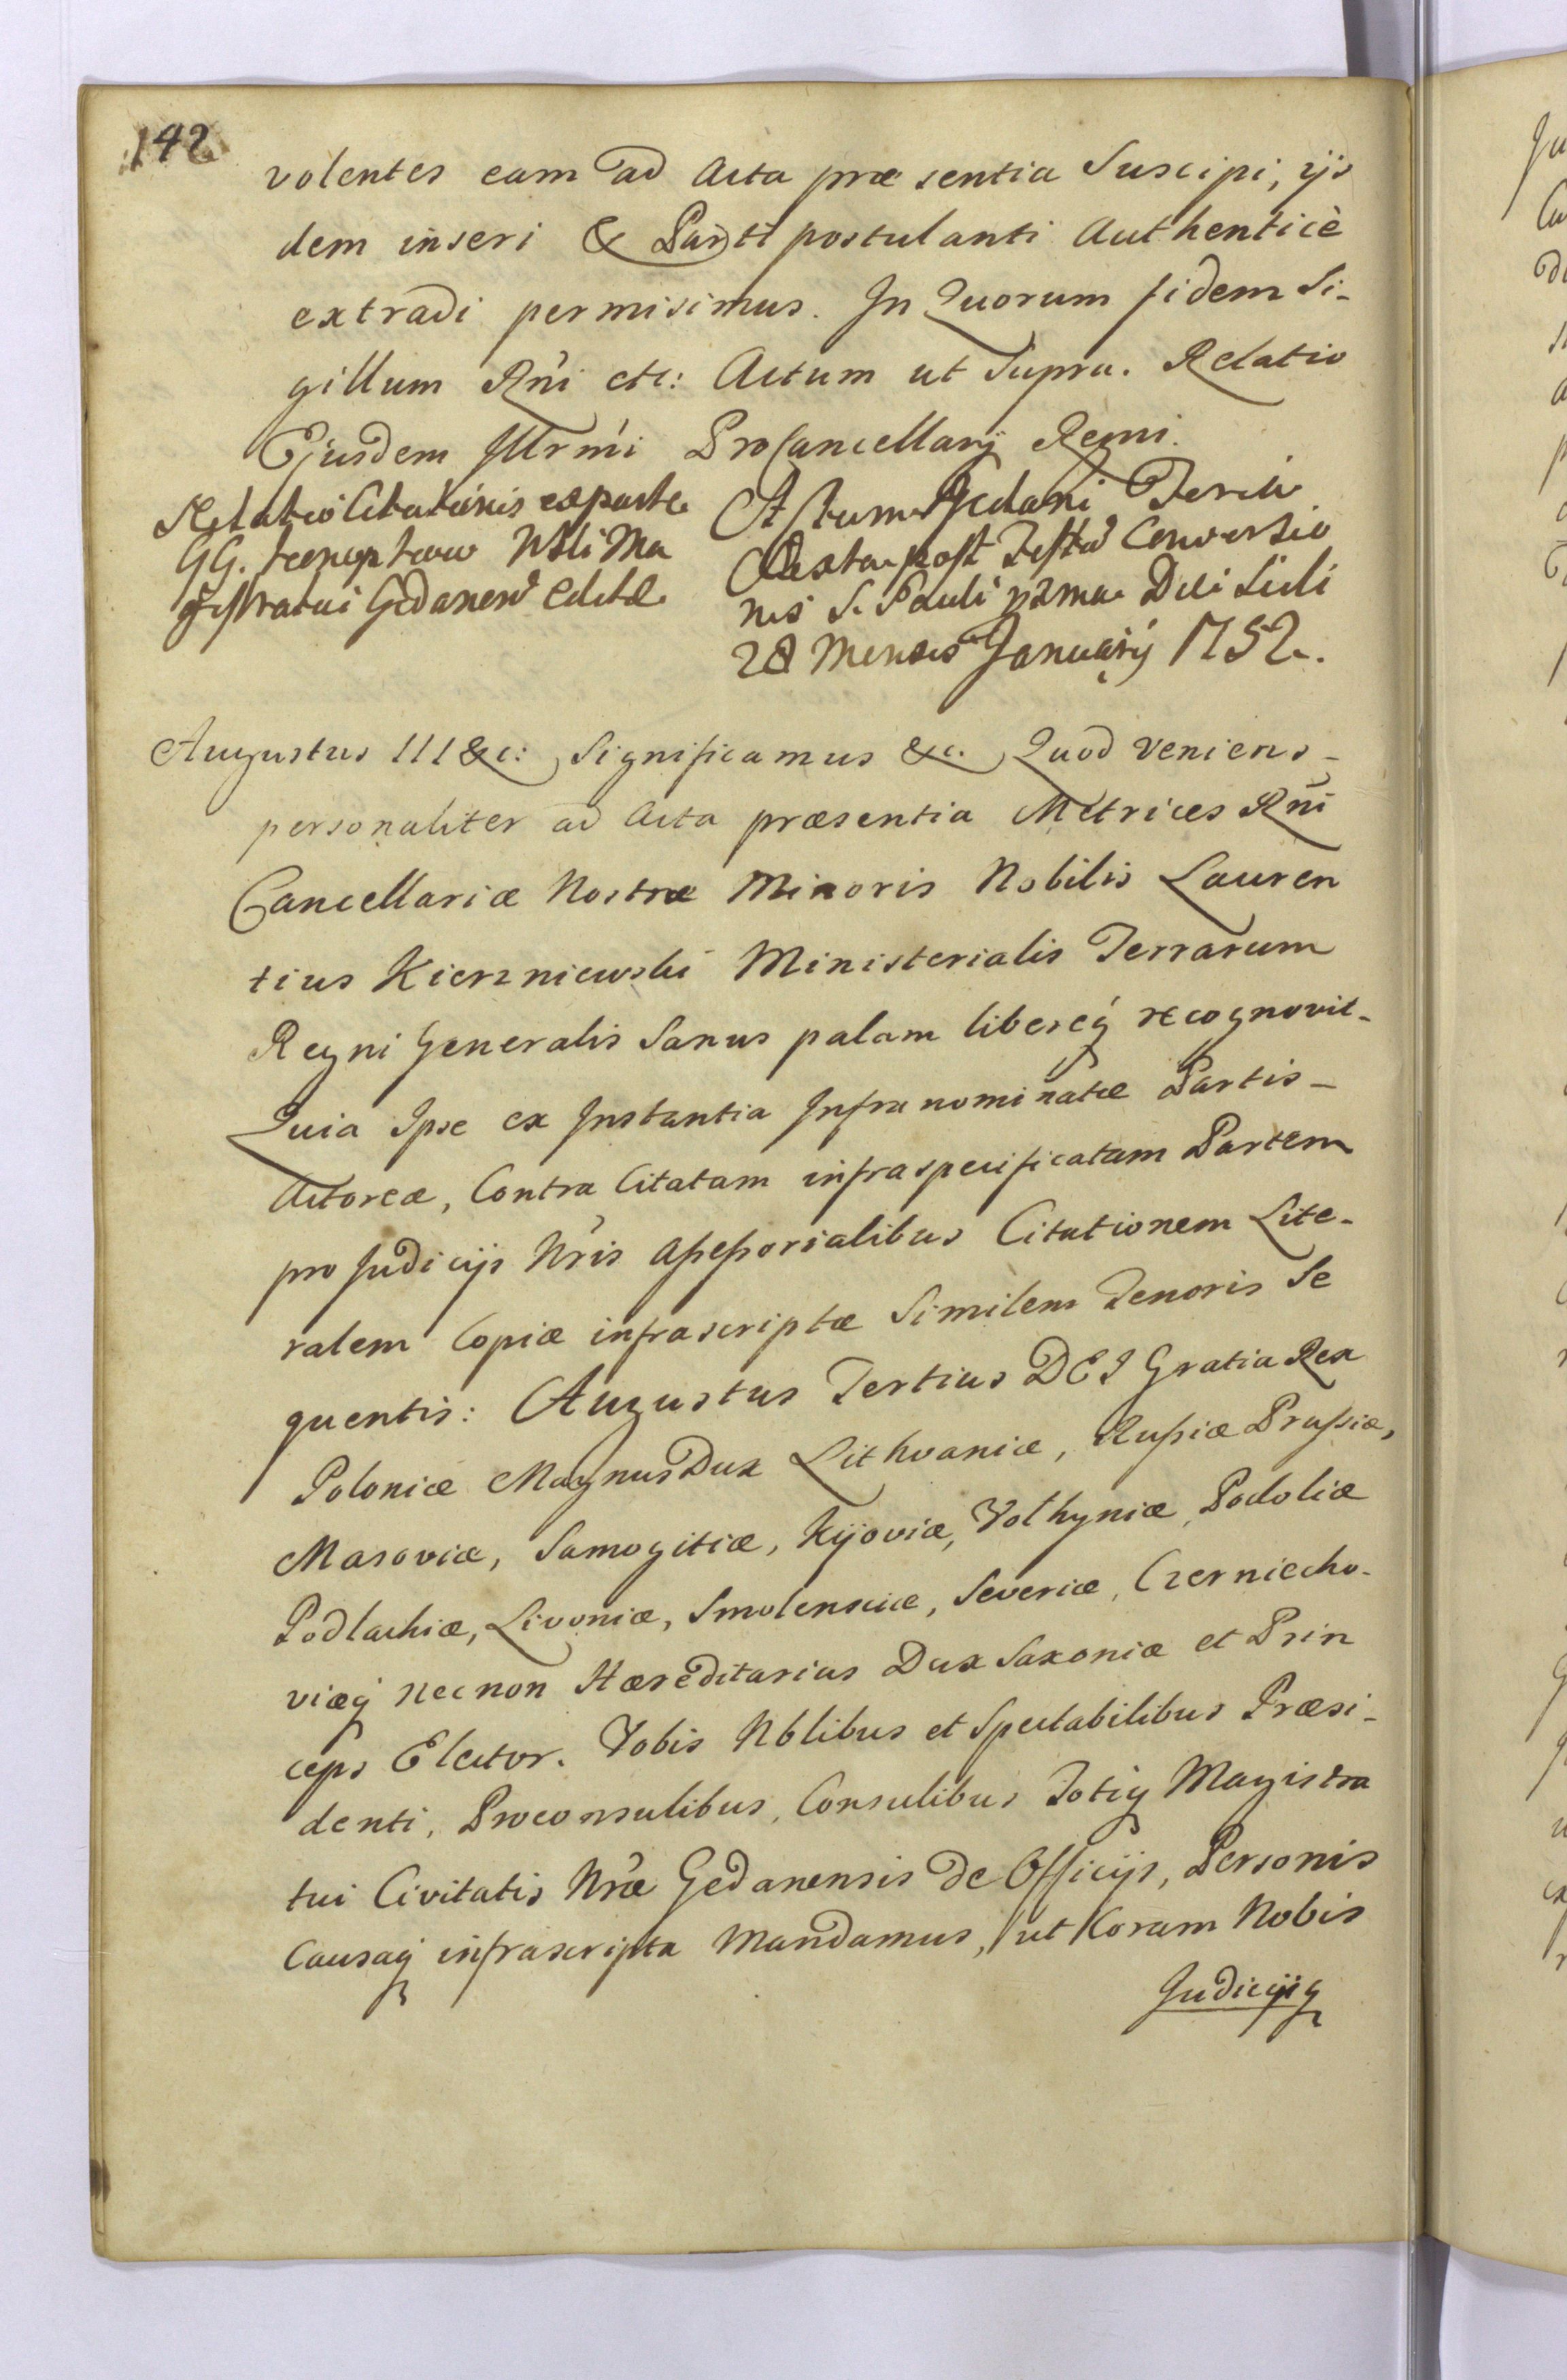 142
volentes eam ad Acta præsentia Suscipi, ijs
dem inseri & Parti postulanti Authenticè
extradi permisimus. In Quorum fidem Si-
gillum Rñi etc: Actum ut Supra. Relatio
Ejusdem Illrmi ProCancellarij Regni.
Relatio Citationis ex parte
GG. Nbli Ma
gistratui Gedanen Editæ
Actum Gedani Feria
Sexta post Festũ Conversio
nis S. Pauli Diei Scili
28 Mensis Januarij 1752.
Augustus III &c: Significamus &c. Quod Veniens -
personaliter ad Acta præsentia Metrices Rñi
Cancellariæ Nostræ Minoris Nobilis Lauren
tius Kierzniewski Ministerialis Terrarum
Regni Generalis Sanus palam libereq recognovit -
Quia Ipse ex Instantia Infranominatæ Partis -
Actoreæ, Contra Citatam infraspecificatam Partem
pro Judicijs Nris Assessorialibus Citationem Lite-
ralem Copiæ infrascriptæ Similem Tenoris Se
quentis: Augustus Tertius DEI Gratia Rex
Poloniæ Magnus Dux Lithvaniæ, Russiæ Prussiæ,
Masoviæ, Samogitiæ, Kijoviæ, Volhyniæ, Podoliæ
Podlachiæ, Livoniæ, Smolensciæ, Severiæ, Czerniecho-
viæq necnon Hæreditarius Dux Saxoniæ et Prin
ceps Elector. Vobis Nblibus et Spectabilibus Præsi-
denti, Proconsulibus, Consulibus Totiq Magistra
tui Civitatis Nræ Gedanensis de Officijs, Personis
Causaq infrascripta Mandamus, ut Coram Nobis
Judicijsq